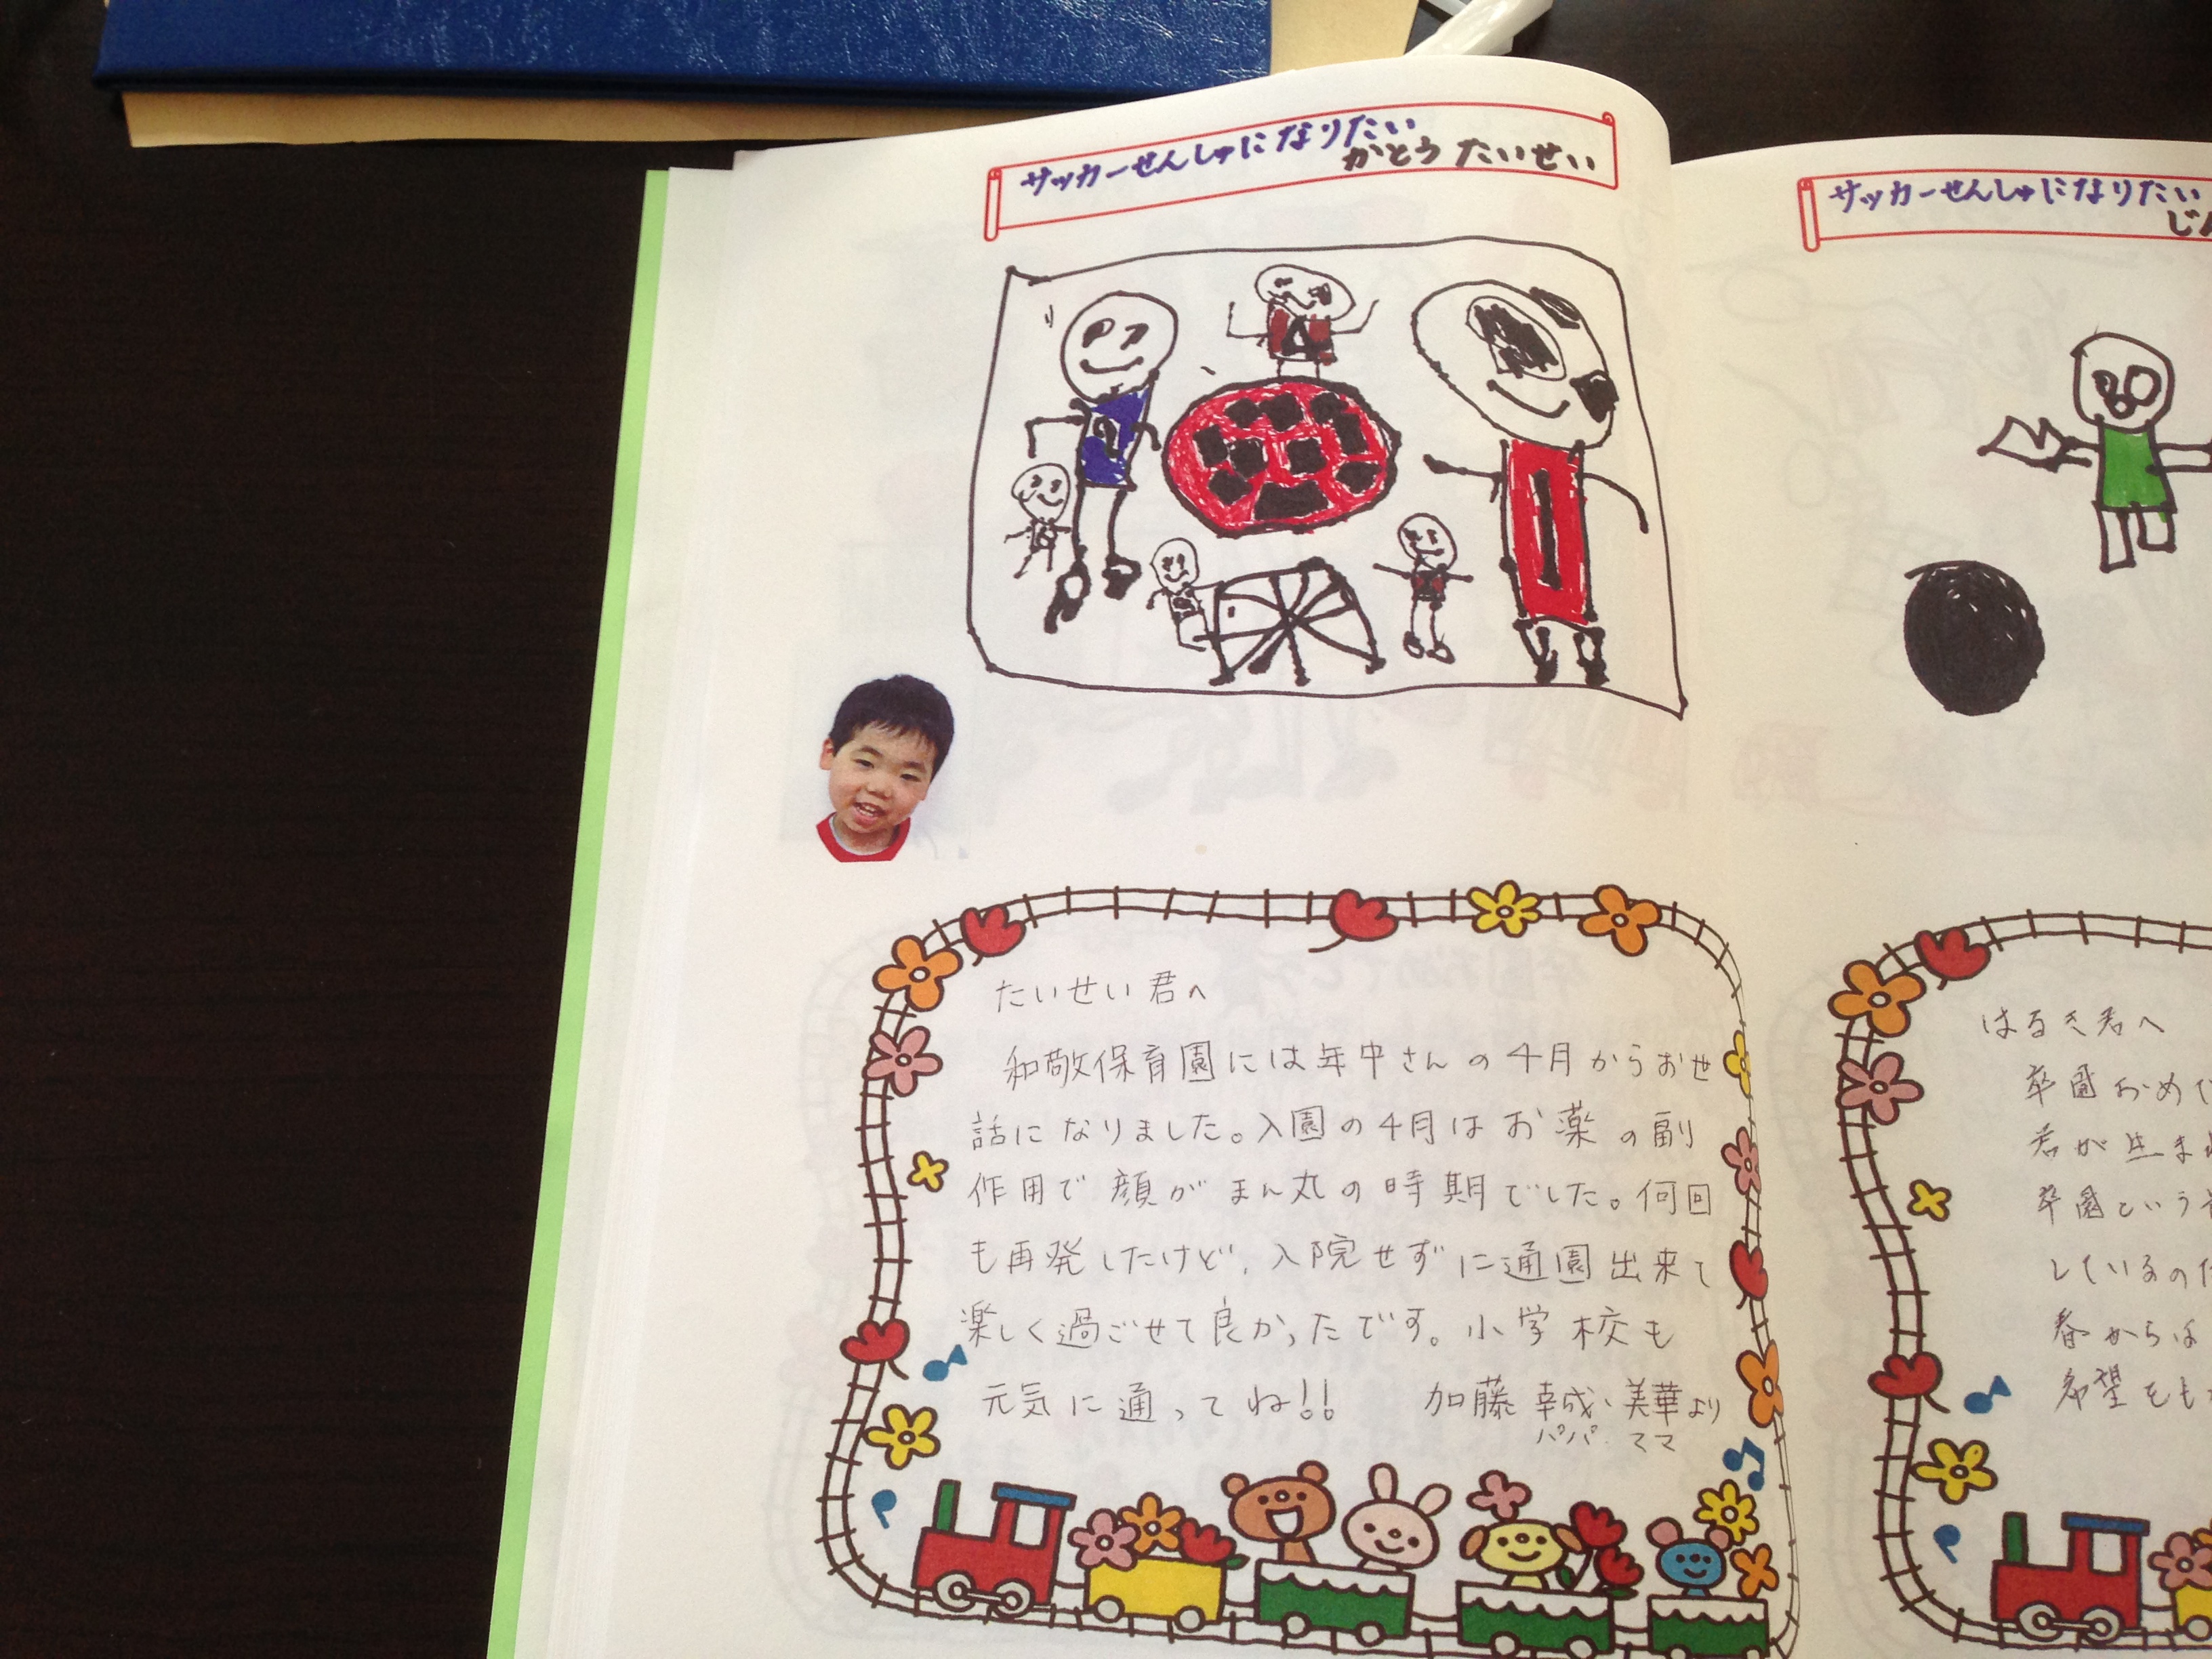 サッカーせんしゅになりたい
かとう たいせい
たいせい君へ
和敬保育園には年中さんの4月からお世
話になりました。入園の4月はお薬の副
作用で顔がまん丸の時期でした。何回
も再発したけど、入院せずに通園出来て
楽しく過ごせて良かったです。小学校も
元気に通ってね!! 加藤 幸成、美華より
パパ ママ
サッカーせんしゅになりたい
はるき君へ
卒園おめで
君が生まれ
卒園という
しているのだ
春からは
希望をも